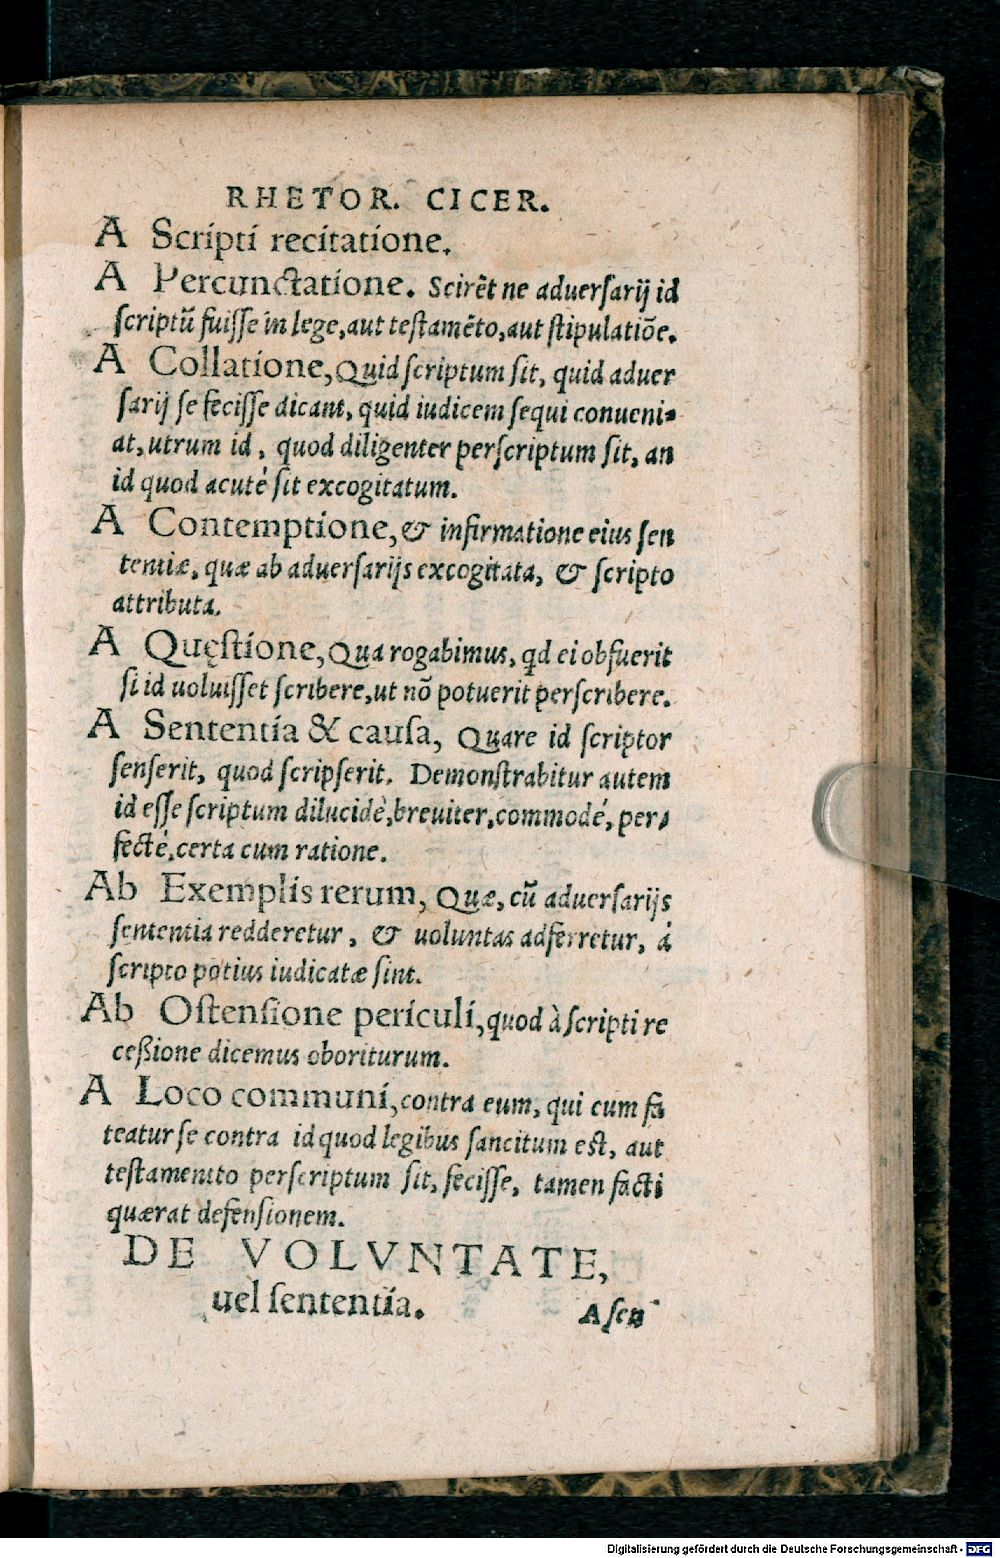 RHETOR. CICER.
A Scripti recitatione.
A Percunctatione. Scirēt ne aduersarij id
scriptū fuisse in lege, aut testamēto, aut stipulatiōe.
A Collatione, Quid scriptum sit, quid aduer
sarij se fecisse dicant, quid iudicem sequi conueni-
at, utrum id, quod diligenter perscriptum sit, an
id quod acuté sit excogitatum.
A Contemptione, & infirmatione eius sen
tentiæ, quæ ab aduersarijs excogitata, & scripto
attributa.
A Quęstione, Qua rogabimus, qd ei obfuerit
si id uoluisset scribere, ut nō potuerit perscribere.
A Sententia & causa, Quare id scriptor
senserit, quod scripserit. Demonstrabitur autem
id esse scriptum dilucidè, breuiter, commodé, per-
fecté, certa cum ratione.
Ab Exemplis rerum, Quæ, cū aduersarijs
sententia redderetur, & uoluntas adferretur, á
scripto potius iudicatæ sint.
Ab Ostensione periculi, quod à scripti re
ceßione dicemus oboriturum.
A Loco communi, contra eum, qui cum fa
teatur se contra id quod legibus sancitum est, aut
testamento perscriptum sit, fecisse, tamen facti
quærat defensionem.
DE VOLVNTATE,
uel sententia.
A sen
Digitalisierung gefördert durch die Deutsche Forschungsgemeinschaft - DFG